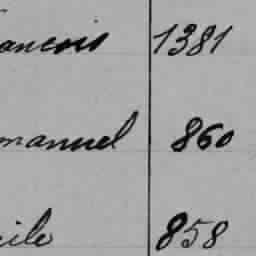 ancois 1381
manuel 860
cile 858